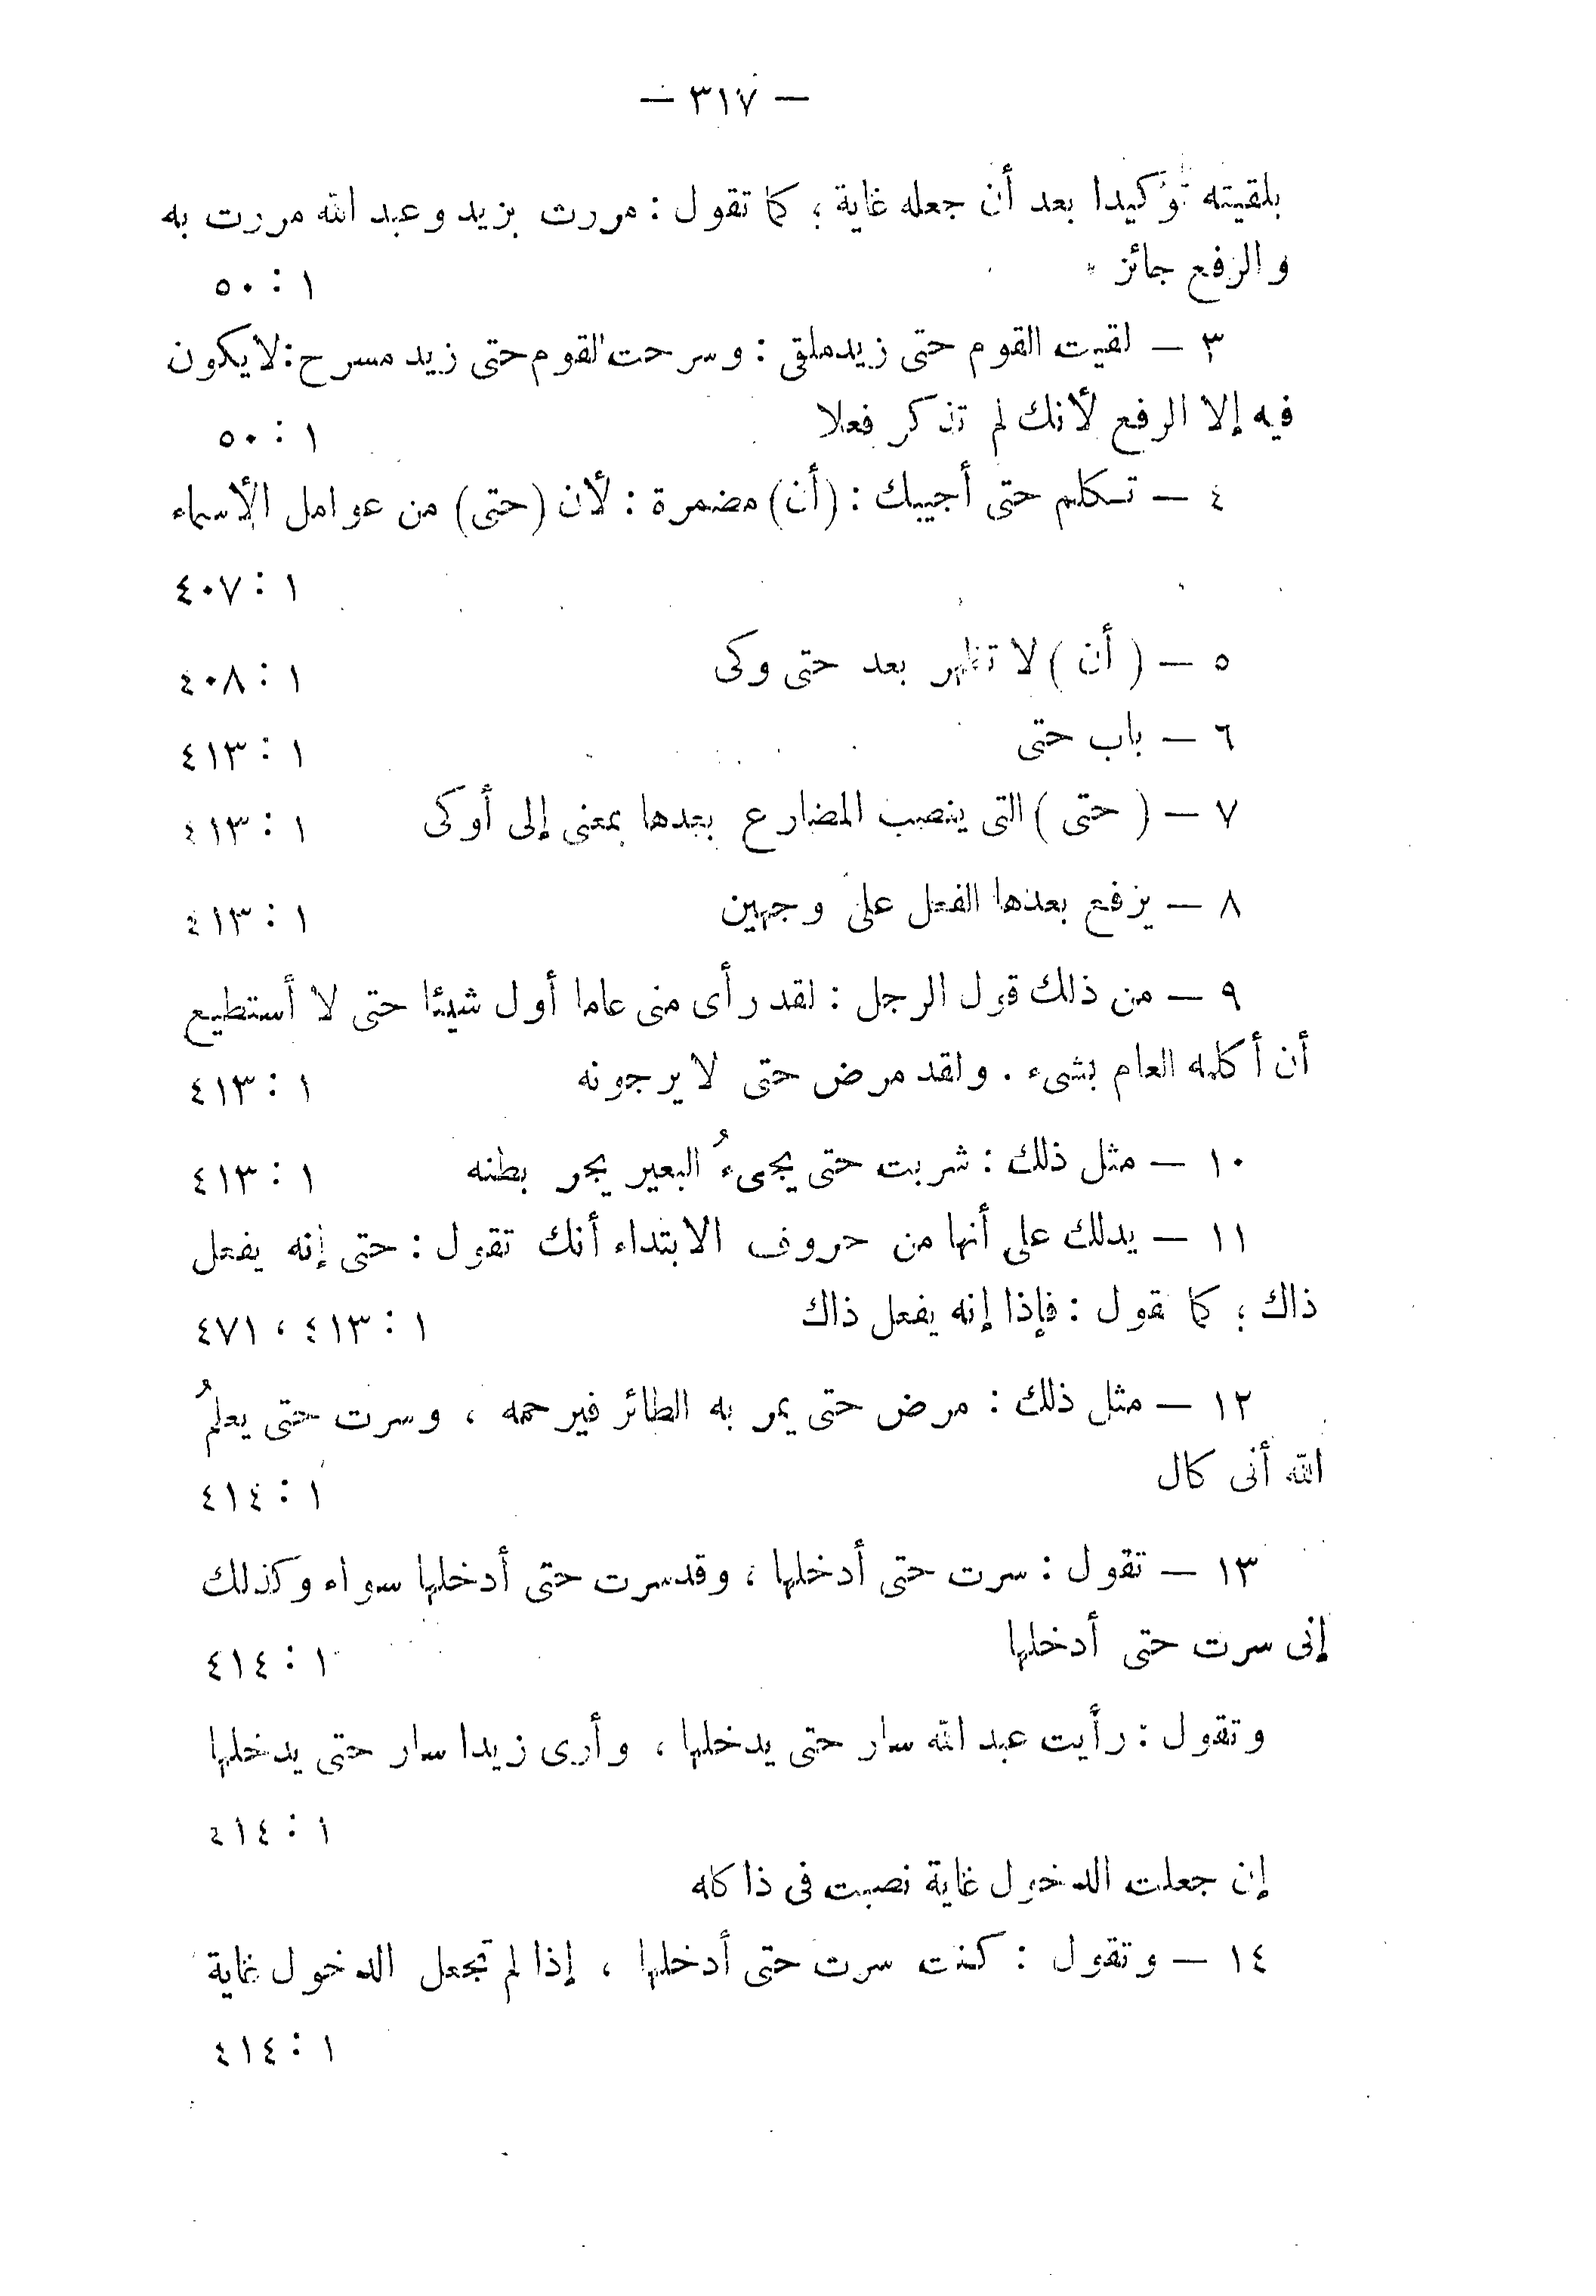 — ٣١٧ —
بلقيته توكيدا بعد أن جعله غاية ؛ كما تقول : مررت بزيد وعبد الله مررت به
والرفع جائز ١ : ٥٠
٣ — لقيت القوم حتى زيد ملقى : وسرحت القوم حتى زيد مسرح : لا يكون
فيه إلا الرفع لأنك لم تذكر فعلا ١ : ٥٠
٤ — تكلم حتى أجيبك : (أن) مضمرة : لأن (حتى) من عوامل الأسماء
١ : ٤٠٧
٥ — ( أن ) لا تظهر بعد حتى وكى ١ : ٤٠٨
٦ — باب حتى ١ : ٤١٣
٧ — ( حتى ) التى ينصب المضارع بعدها بمعنى إلى أو كى ١ : ٤١٣
٨ — يرفع بعدها الفعل على وجهين ١ : ٤١٣
٩ — من ذلك قول الرجل : لقد رأى منى عاما أول شيئا حتى لا أستطيع
أن أكلمه العام بشىء . ولقد مرض حتى لا يرجونه ١ : ٤١٣
١٠ — مثل ذلك : شربت حتى يجىءُ البعير يجر بطنه ١ : ٤١٣
١١ — يدلك على أنها من حروف الابتداء أنك تقول : حتى إنه يفعل
ذاك ؛ كما تقول : فإذا إنه يفعل ذاك ١ : ٤١٣ ، ٤٧١
١٢ — مثل ذلك : مرض حتى يمر به الطائر فيرحمه ، وسرت حتى يعلمُ
الله أنى كال ١ : ٤١٤
١٣ — تقول : سرت حتى أدخلها ، وقد سرت حتى أدخلها سواء وكذلك
إنى سرت حتى أدخلها ١ : ٤١٤
وتقول : رأيت عبد الله سار حتى يدخلها ، وأرى زيدا سار حتى يدخلها
١ : ٤١٤
إن جعلت الدخول غاية نصبت فى ذا كله
١٤ — وتقول : كنت سرت حتى أدخلها ، إذا لم تجعل الدخول غاية
١ : ٤١٤